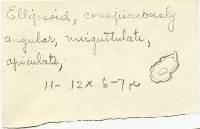 Ellipsoid, conspicuously
angular, uniguttulate,
apiculate,
11-12 x 6-7 µ